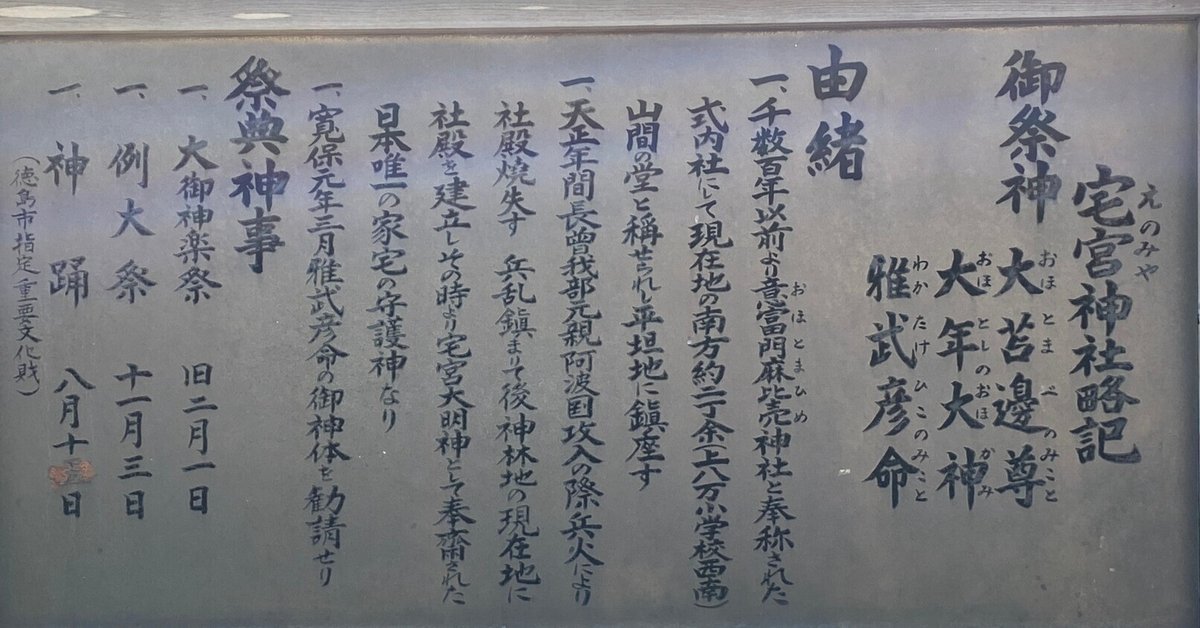 宅宮神社略記
えのみや
御祭神
大苫邊尊
おほとまべのみこと
大年大神
おほとしのおほかみ
雅武彦命
わかたけひこのみこと
由緒
一、千数百年以前より意富門麻比売神社と奉称された
おほとまひめ
式内社にして現在地の南方約二丁余(上八万小学校西南)
山間の堂と稱せられし平坦地に鎭座す
一、天正年間長曽我部元親阿波国攻入の際兵火により
社殿焼失す 兵乱鎭まりて後神林地の現在地に
社殿を建立しその時より宅宮大明神として奉齋された
日本唯一の家宅の守護神なり
一、寛保元年三月雅武彦命の御神体を勧請せり
祭典神事
一、大御神楽祭 旧二月一日
一、例大祭 十一月三日
一、神踊 八月十 日
(徳島市指定重要文化財)